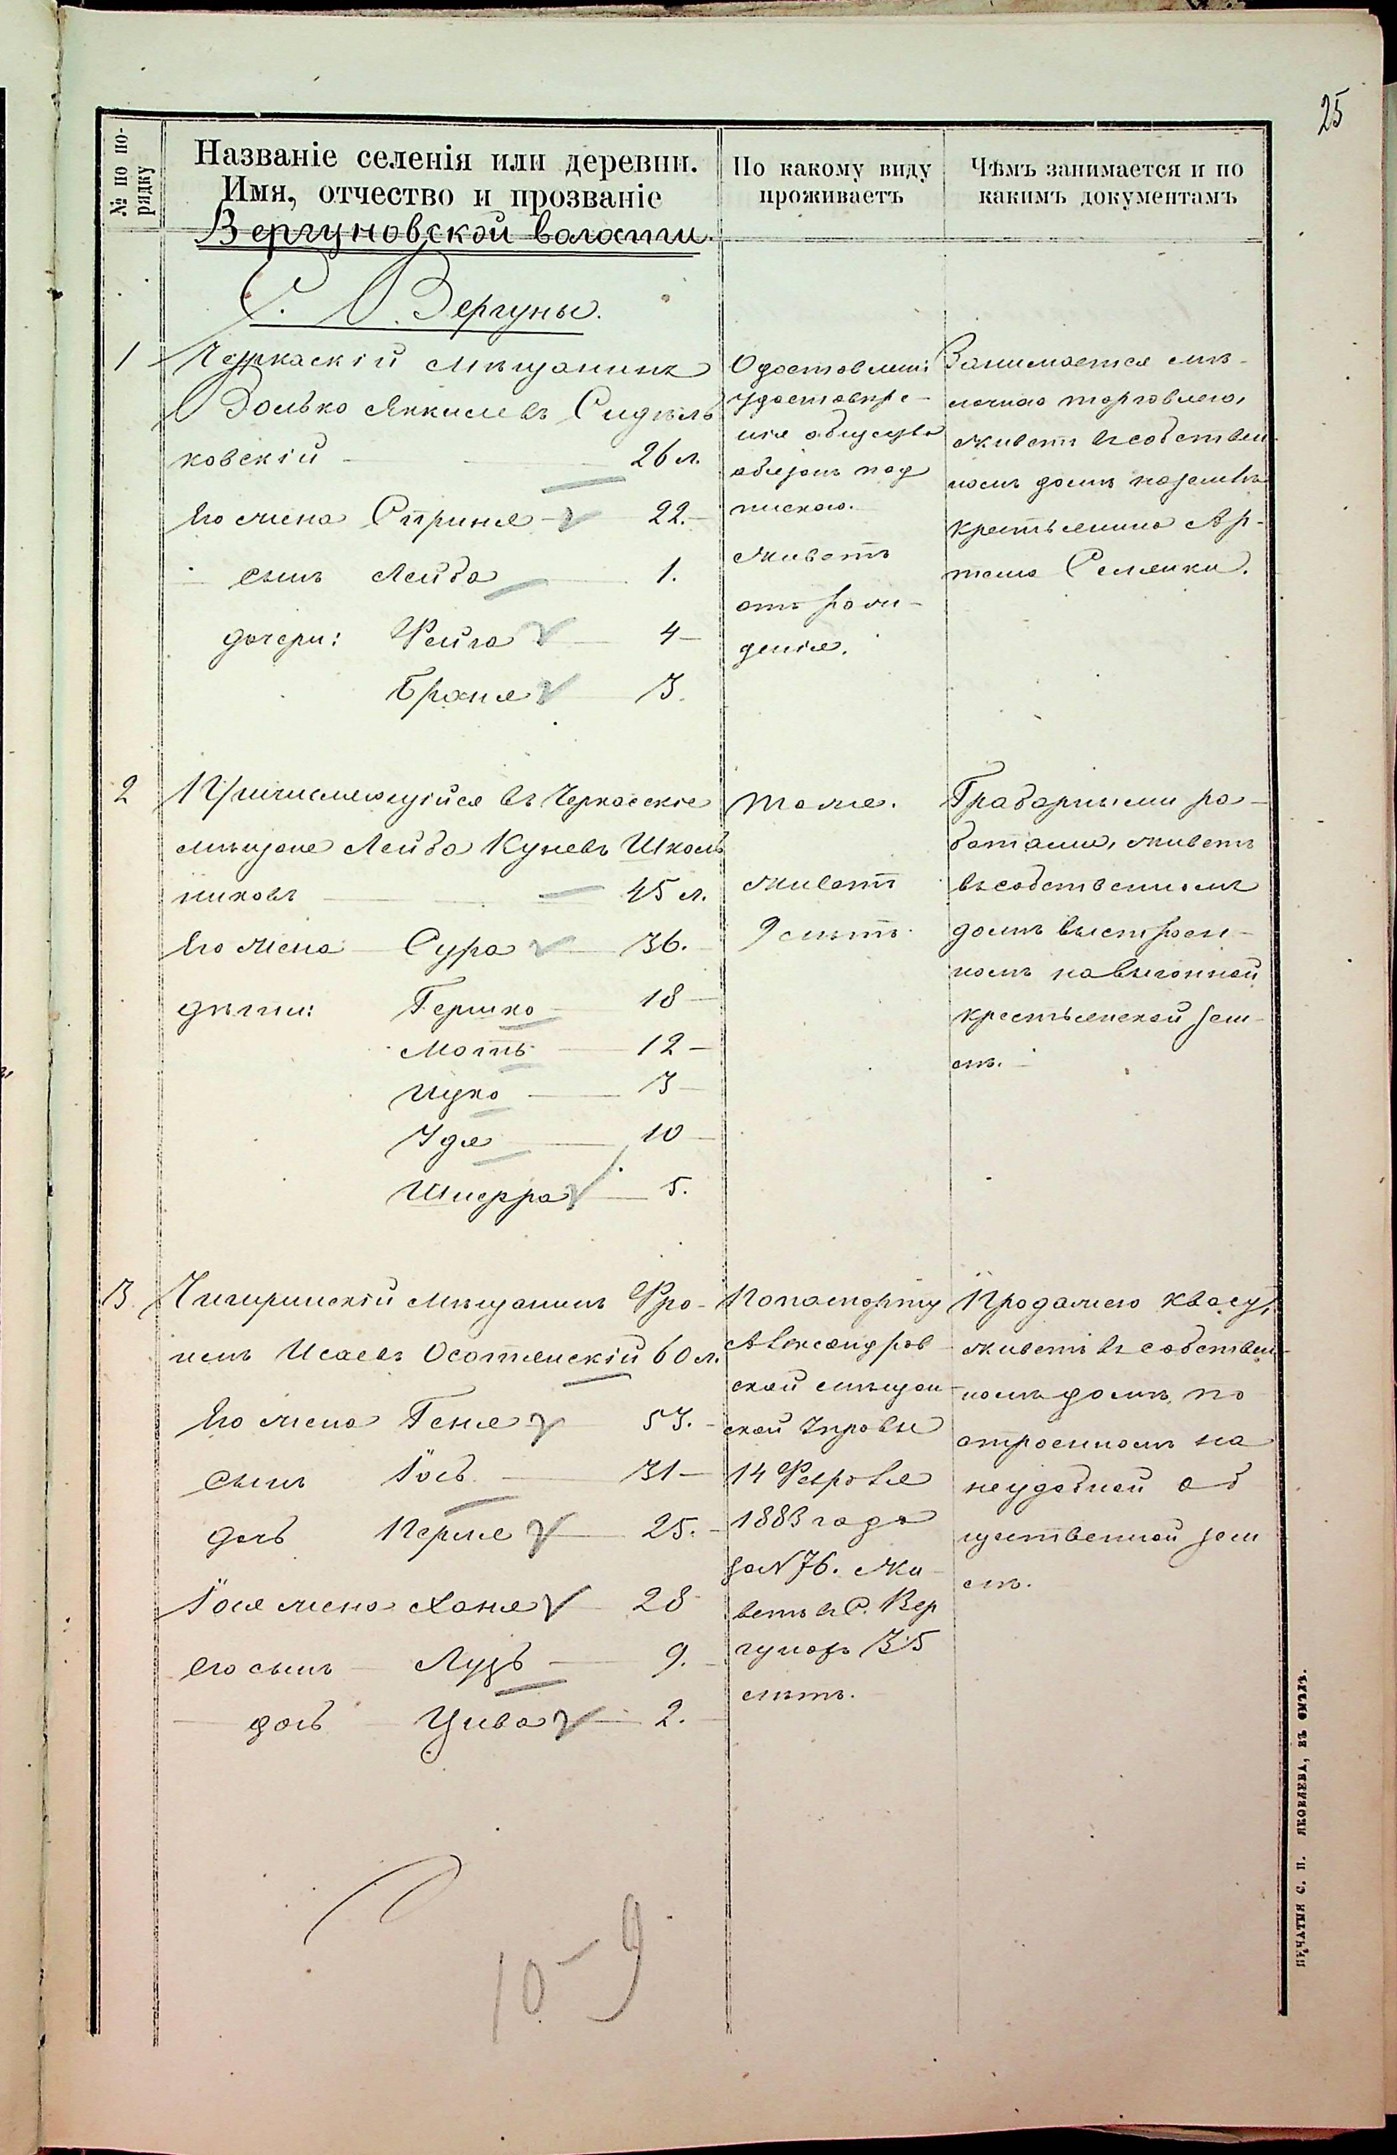 25
№ по по-
рядку
Названіе селенія или деревни.
Имя, отчество и прозваніе
По какому виду
проживаетъ
Чѣмъ занимается и по
какимъ документамъ
Вергуновской волости.
С. Вергуны.
1
Черкаскій мѣщанинъ
Волько Янкилевъ Сидѣль
ковскій 26 л.
Его жена Сприня 22.
сынъ Лейба 1.
дочери: Фейга 4
Браня 3.
О доставленіи
удостовѣре-
нія общества
обязанъ под
пискою.
живетъ
отъ рож-
денія.
Занимается ме-
лочною торговлею,
живетъ въ собствен
номъ домѣ на землѣ
крестьянина Ар-
тема Семенки.
2
Причисляющійся въ Черкасскіе
мѣщане Лейба Куневъ Школь
никовъ 45 л.
Его жена Сура 36.
дѣти: Гершко 18
Моть 12
Ицко 3
Удя 10
Шифра 5.
тоже.
живетъ
9 лѣтъ.
Грабарными ра-
ботами, живетъ
въ собственномъ
домѣ выстроен-
номъ на выгонной
крестьянской зем-
лѣ.
3.
Чигиринскій мѣщанинъ Фро-
имъ Исаевъ Осотянскій 60 л.
Его жена Геня 53.
сынъ Іось 31
дочь Перля 25.
Іося жена Ханя 28
его сынъ Лузъ 9.
дочь Цива 2.
По паспорту
Александров
ской мѣщан
ской Управы
14 Февраля
1883 года
за № 76. Жи
ветъ въ С. Вер
гунахъ 35
лѣтъ.
Продажею квасу,
живетъ въ собствен-
номъ домѣ, по
строенномъ на
неудобной об
щественной зем
лѣ.
10-9
ПЕЧАТНЯ С. П. ЯКОВЛЕВА, ВЪ